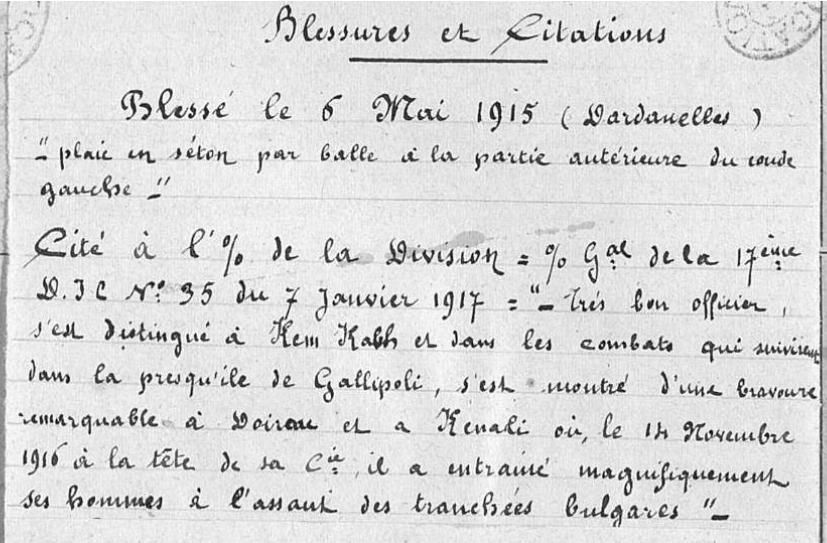 Blessures et Citations
Blessé le 6 Mai 1915 (Dardanelles)
"plaie en séton par balle à la partie antérieure du coude
gauche"
Cité à l'% de la Division = % Gal de la 17ème
D.I C No 35 du 7 Janvier 1917 = "_ Très bon officier,
s'est distingué à Kem Kabh et dans les combats qui suivirent
dans la presqu'ile de Gallipoli, s'est montré d'une bravoure
remarquable à Doiran et a Kenali où, le 14 Novembre
1916 à la tête de sa Cie, il a entrainé magnifiquement
ses hommes à l'assaut des tranchées bulgares "_